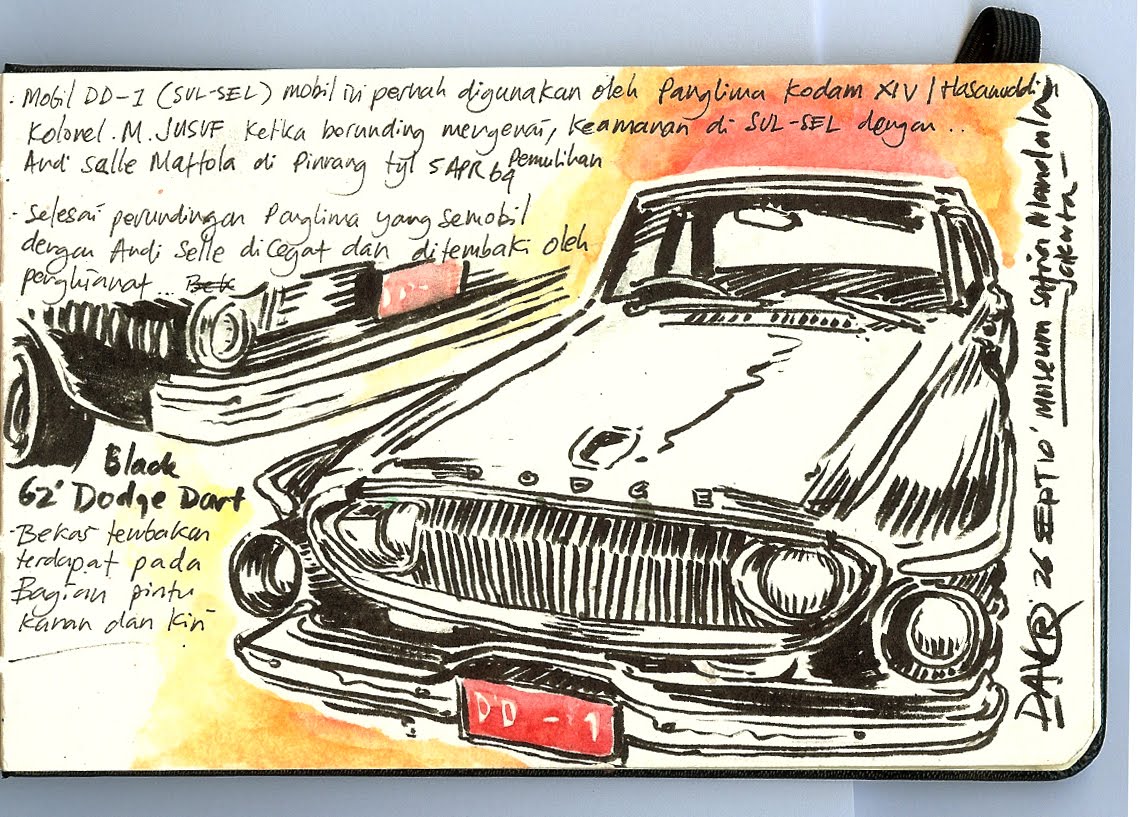 · Mobil DD-1 (SUL-SEL) mobil ini pernah digunakan oleh Panglima Kodam XIV/Hasanuddin
Kolonel. M. JUSUF ketika berunding mengenai, Keamanan di SUL-SEL dengan ..
Pemulihan
Andi Salle Mattola di Pinrang tgl 5 APR 64
· Selesai perundingan Panglima yang semobil
dengan Andi Selle dicegat dan ditembaki oleh
penghianat ...
DD-
Black
62' Dodge Dart
· Bekas tembakan
terdapat pada
Bagian pintu
kanan dan kiri
DODGE
DD-1
26 SEPT 10' Museum Satria Mandala
Jakarta